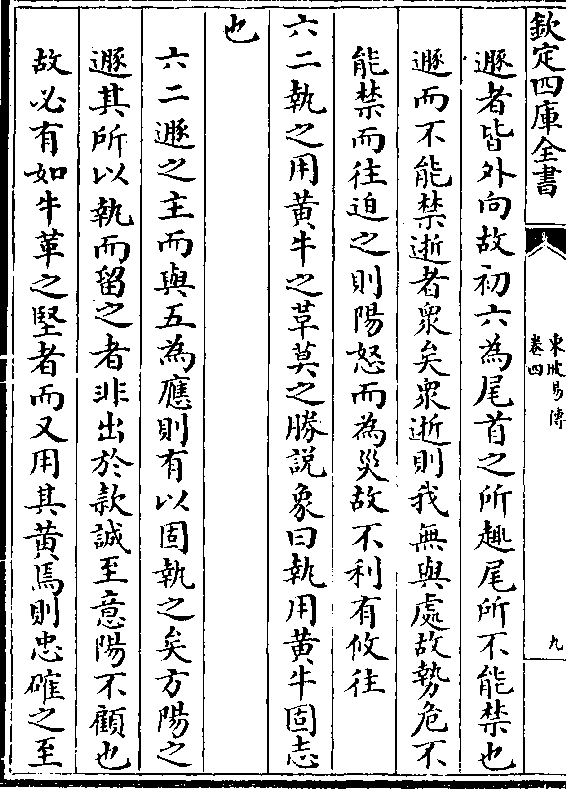 欽定四庫全書
東坡易傳
卷四
九
遯者皆外向故初六為尾首之所趣尾所不能禁也
遯而不能禁逝者衆矣衆逝則我無與處故勢危不
能禁而往迫之則陽怒而為災故不利有攸往
六二執之用黄牛之革莫之勝説象曰執用黄牛固志
也
六二遯之主而與五為應則有以固執之矣方陽之
遯其所以執而留之者非出於款誠至意陽不顧也
故必有如牛革之堅者而又用其黄焉則忠確之至